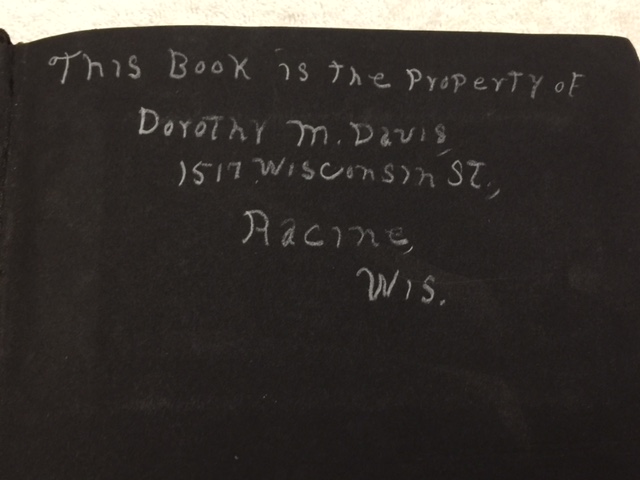 This Book is the Property of
Dorothy M. Davis,
1517 Wisconsin St.,
Racine,
Wis.